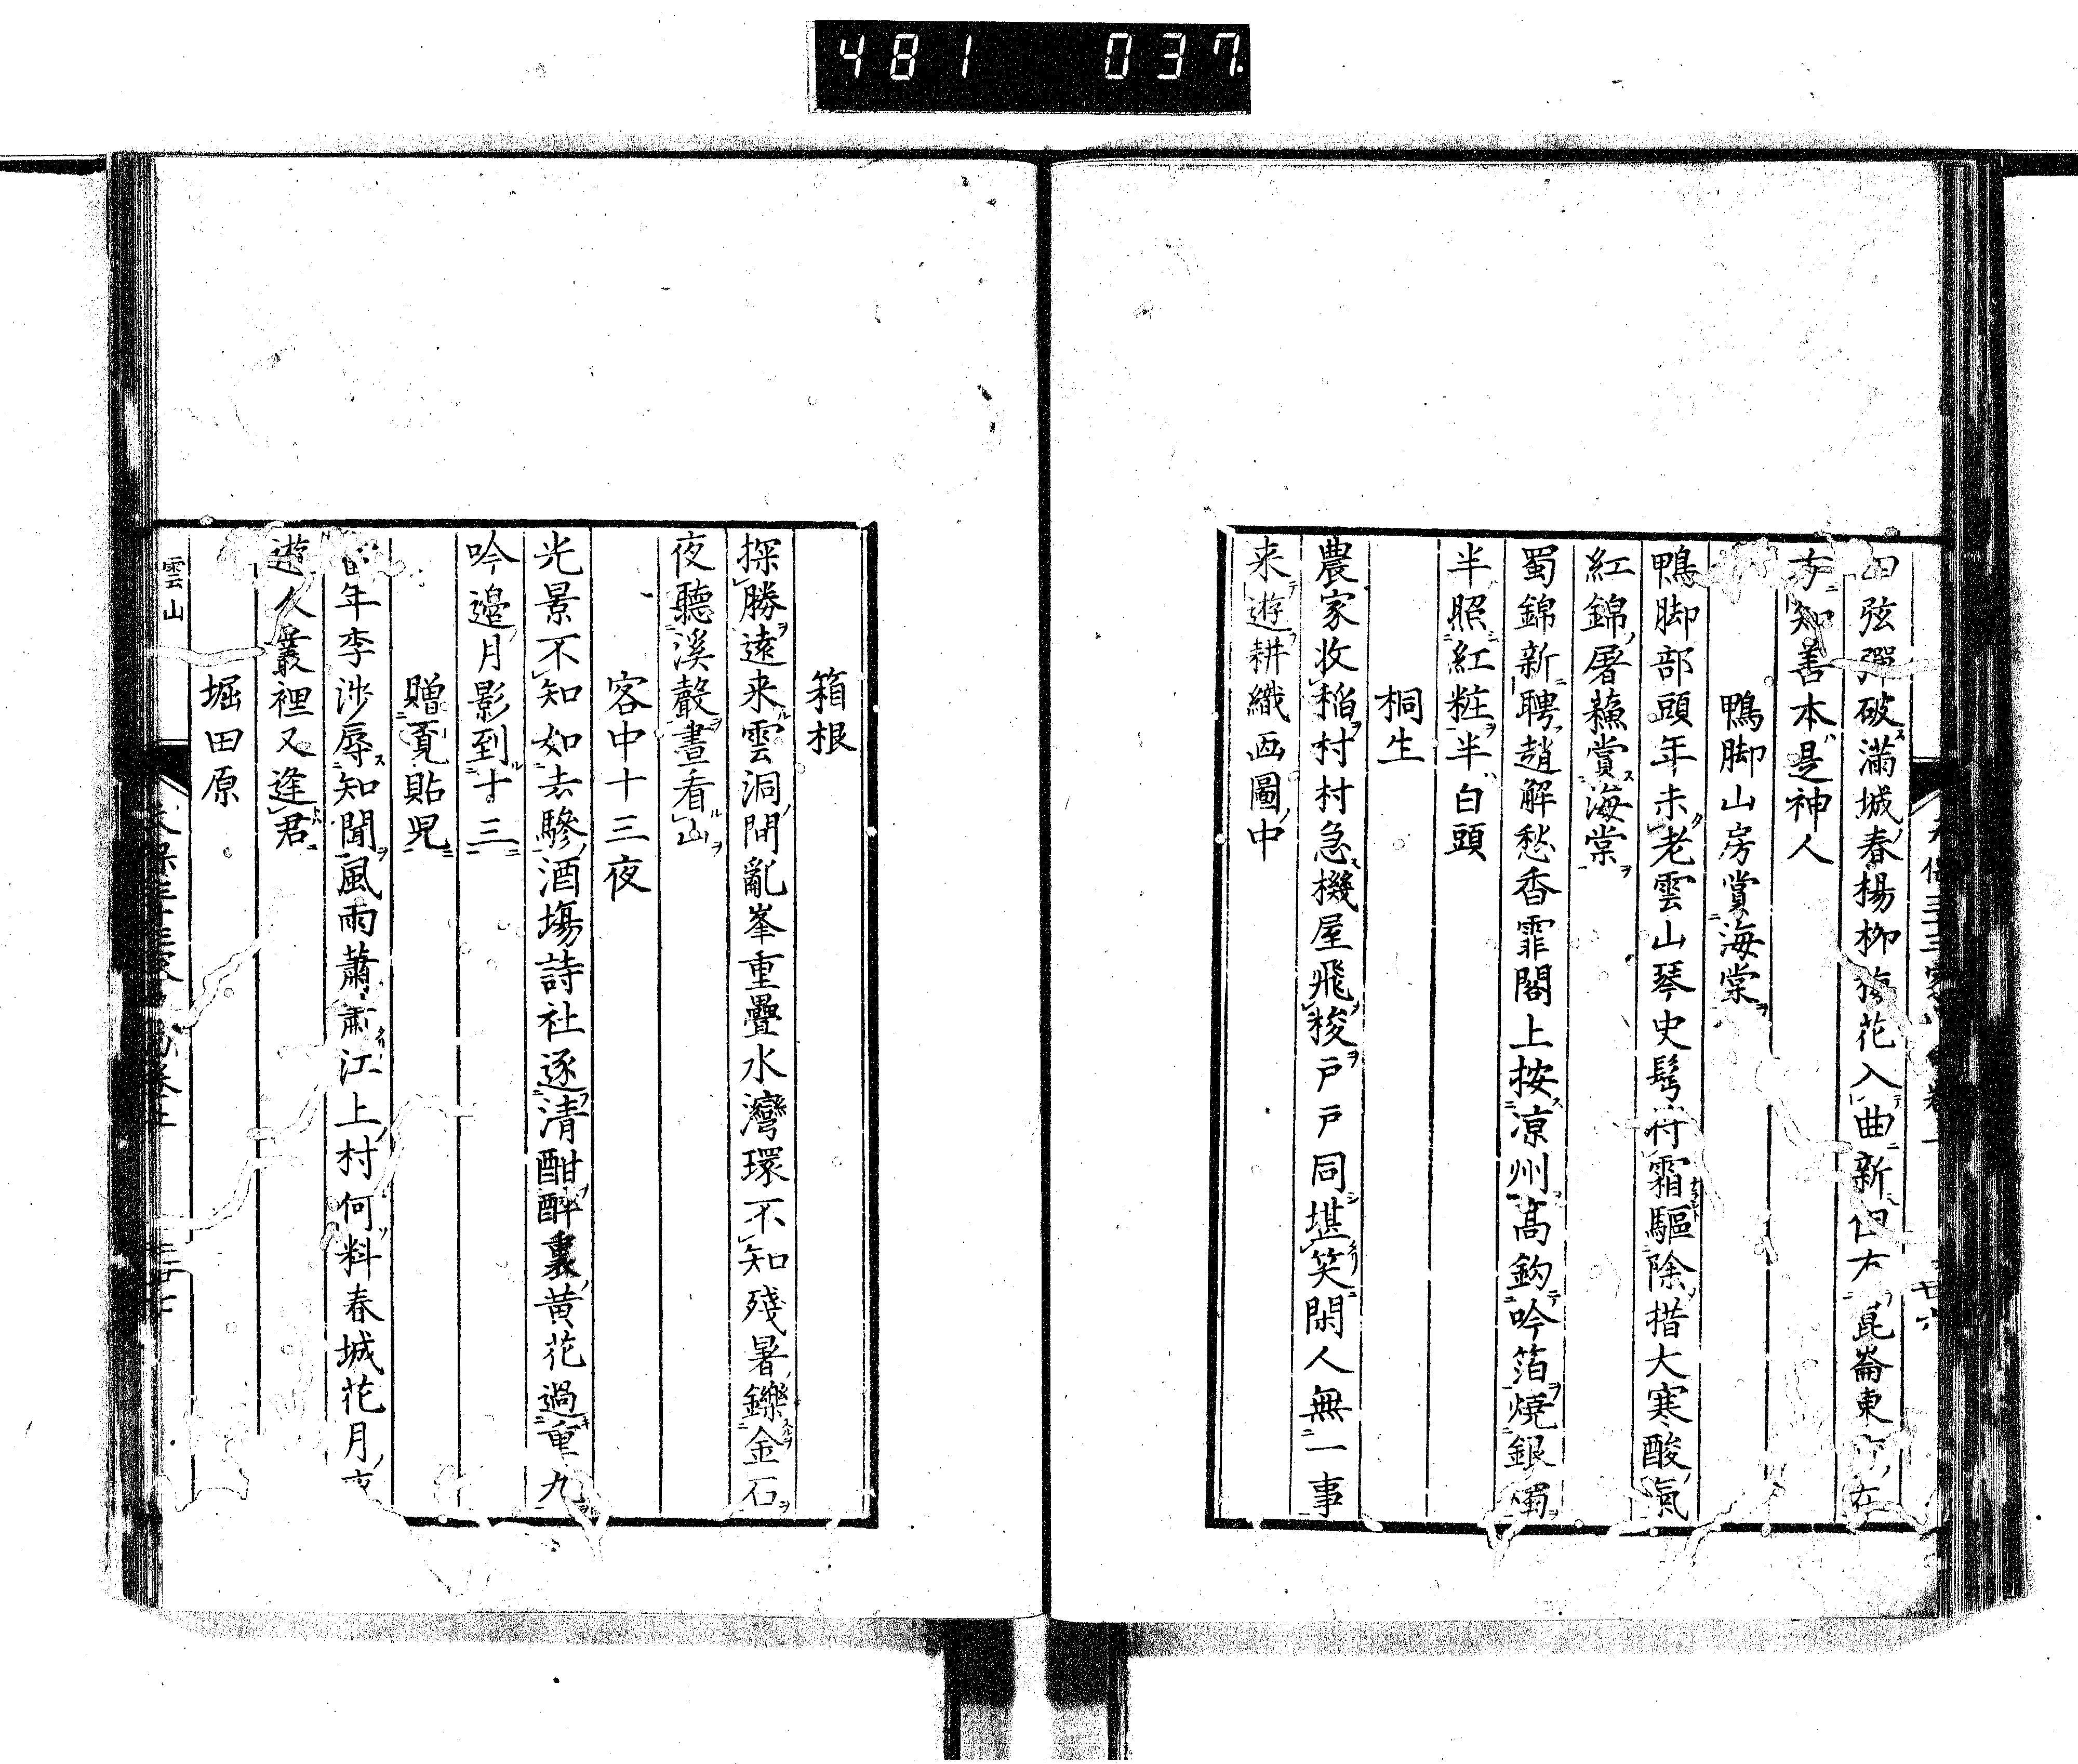 481 037
四弦彈破滿城春楊柳梅花入曲新但有崑崙東市在
方知善本是神人
鴨脚山房賞海棠
鴨脚部頭年未老雲山琴史髩符霜驅除措大寒酸氣
紅錦屠蘓賞海棠
蜀錦新聘趙解愁香霏閣上按凉州高鈎吟箔燒銀燭
半照紅粧半白頭
桐生
農家收稲村村急機屋飛梭戸戸同堪笑閑人無一事
来遊耕織西圖中
箱根
探勝遠来雲洞間亂峯重疊水灣環不知殘暑鑠金石
夜聽溪聲晝看山
客中十三夜
光景不知如去驂酒塲詩社逐清酣醉裏黄花過重九
吟邉月影到十三
贈寛貼児
年李渉辱知聞風雨蕭蕭江上村何料春城花月夜
遊人叢裡又逢君
堀田原
雲山